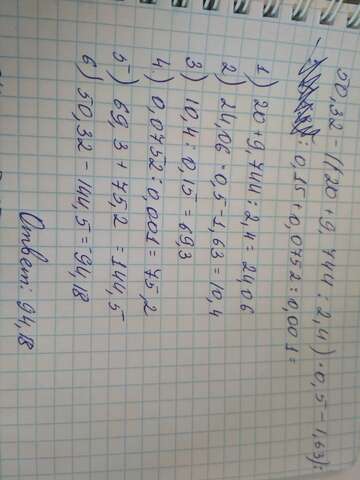 50,32 - ((20+9,744 : 2,4) · 0,5 - 1,63) :
: 0,15 + 0,0752 : 0,001 =
1) 20 + 9,744 : 2,4 = 24,06
2) 24,06 · 0,5 - 1,63 = 10,4
3) 10,4 : 0,15 = 69,3
4) 0,0752 : 0,001 = 75,2
5) 69,3 + 75,2 = 144,5
6) 50,32 - 144,5 = 94,18
Ответ: 94,18